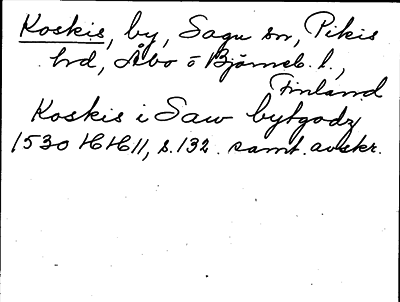 Koskis, by, Sagu sn, Pikis
hrd, Åbo o Björneb. l.,
Finland
Koskis i Saw bytgodz
1530 HHH 11, s. 132. samt. avskr.